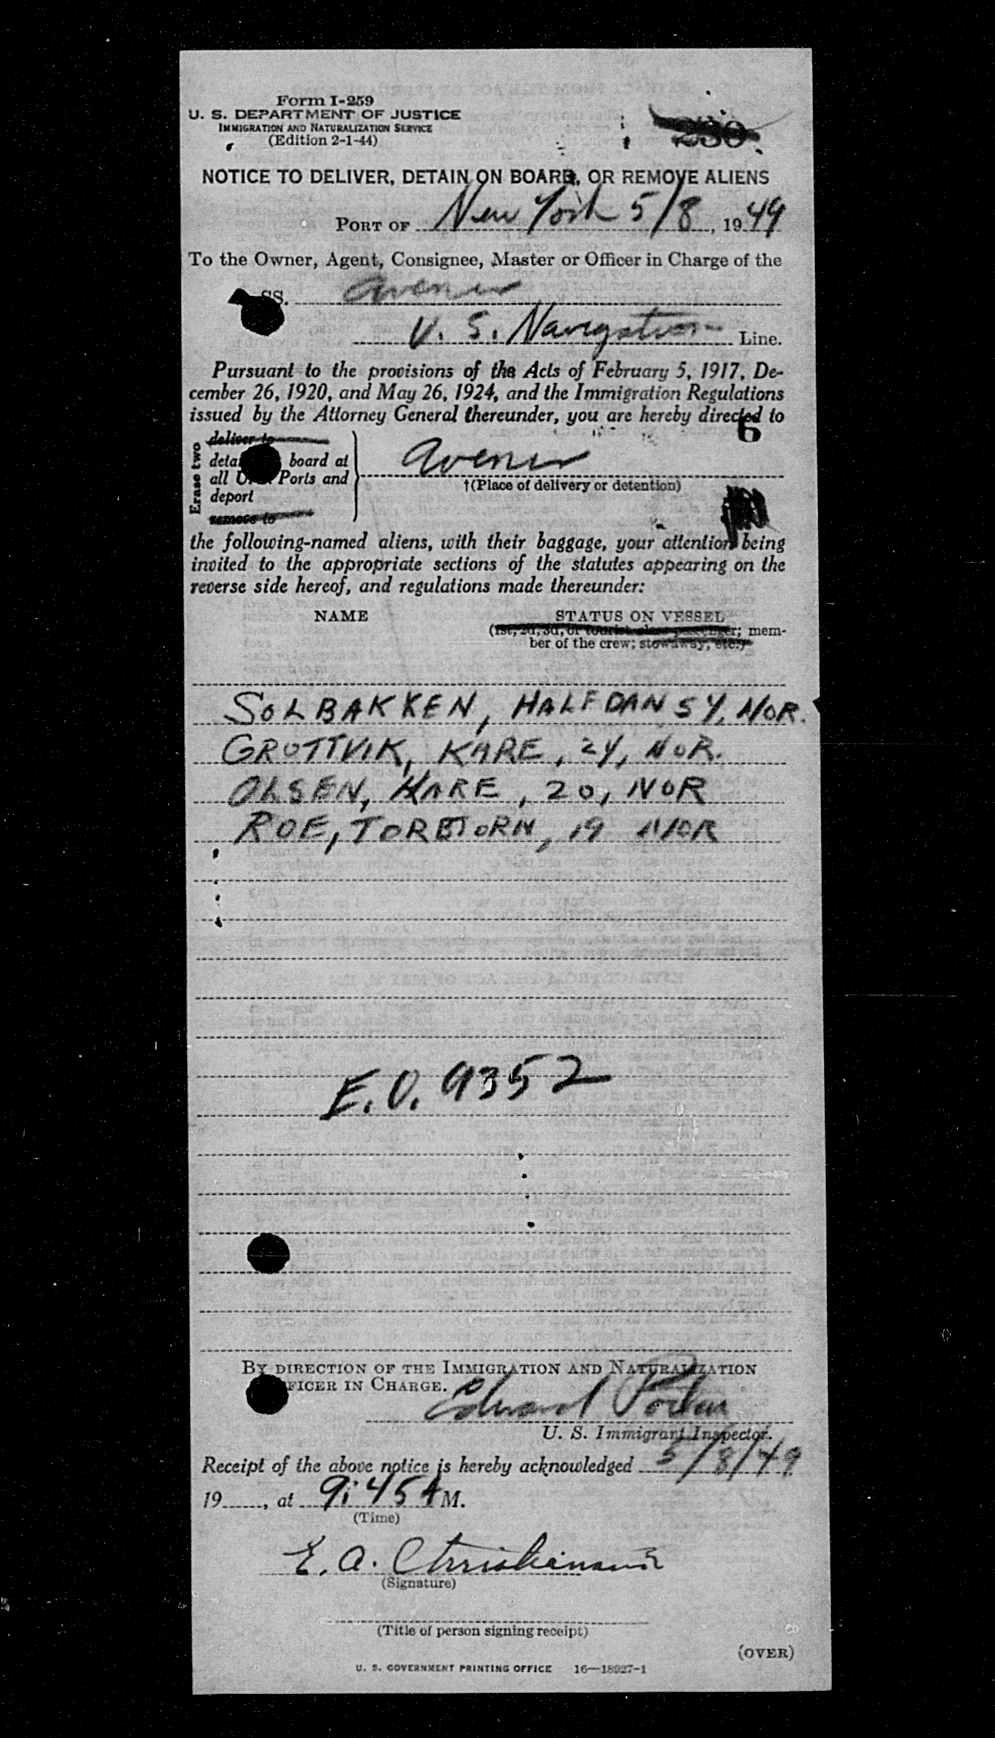 Form I-259
U. S. DEPARTMENT OF JUSTICE
IMMIGRATION AND NATURALIZATION SERVICE
(Edition 2-1-44)
230
NOTICE TO DELIVER, DETAIN ON BOARD, OR REMOVE ALIENS
PORT OF New York 5/8, 1949
To the Owner, Agent, Consignee, Master or Officer in Charge of the
SS. Avenir
U. S. Navigation Line.
Pursuant to the provisions of the Acts of February 5, 1917, De-
cember 26, 1920, and May 26, 1924, and the Immigration Regulations
issued by the Attorney General thereunder, you are hereby directed to
6
Erase two
deliver to
board at
all Ports and
deport
remove to
Avenir
†(Place of delivery or detention)
the following-named aliens, with their baggage, your attention being
invited to the appropriate sections of the statutes appearing on the
reverse side hereof, and regulations made thereunder:
NAME STATUS ON VESSEL
(1st, 2d, 3d, or tourist class passenger; mem-
ber of the crew; stowaway, etc.)
SOLBAKKEN, HALFDAN 54, NOR.
GROTTVIK, KARE, 24, NOR.
OLSEN, KARE, 20, NOR
ROE, TORBJORN, 19 NOR
E.O. 9352
BY DIRECTION OF THE IMMIGRATION AND NATURALIZATION
OFFICER IN CHARGE.
Edward
U. S. Immigrant Inspector.
Receipt of the above notice is hereby acknowledged 5/8/49
19, at 9:45 A M.
(Time)
E. A.
(Signature)
(Title of person signing receipt)
(OVER)
U. S. GOVERNMENT PRINTING OFFICE 16—18927-1